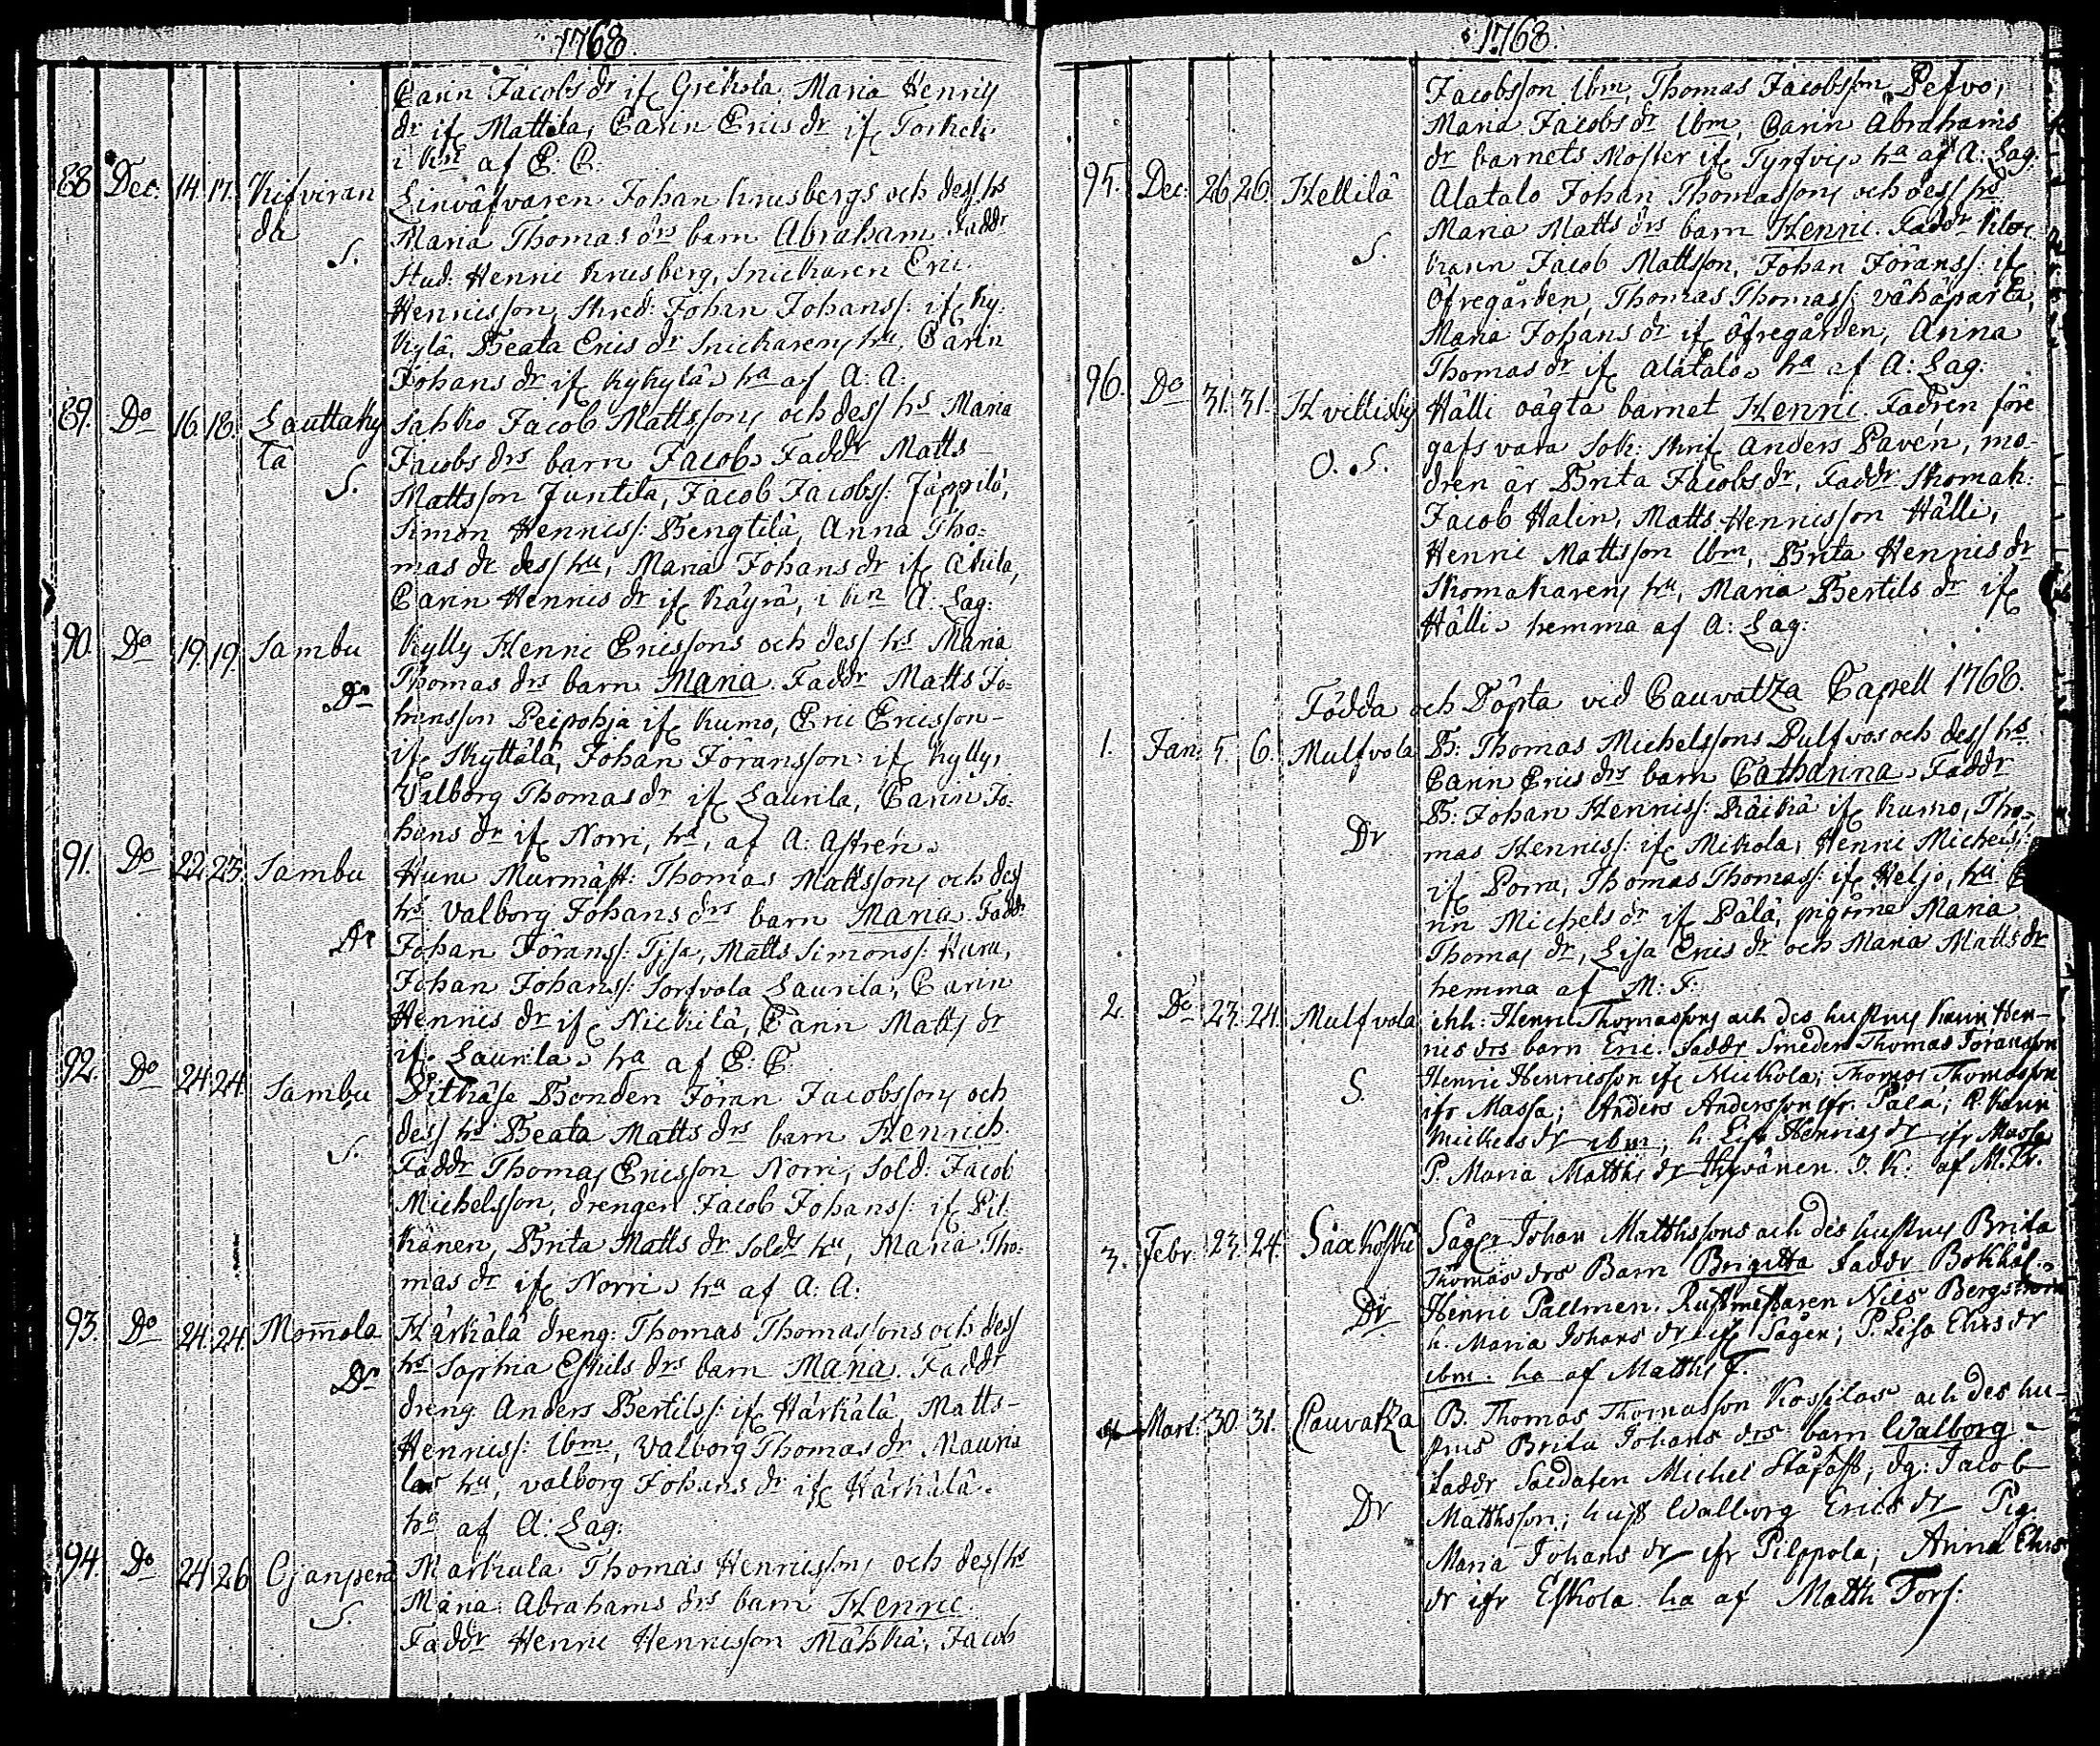 1768.
Carin Jacobs dr if Grekola, Maria Henrics
dr if Mattila, Carin Erics dr if Torkeli
i kn af E. C.
88 Dec. 14. 17. Kifviran Linväfvaren Johan Krusbergs och dess hs
da Maria Thomas drs barn Abraham. Faddr
S. Stud: Henric Krusberg, Snickaren Eric
Henricsson, Skred: Johan Johanss: if Ky-
kylä, Beata Erics dr Snickarens hu, Carin
Johans dr if Kykylä. ha af A: A:
89. Do 16. 18. Lauttaky Sahko Jacob Mattssons och dess hs Maria
lä Jacobs drs barn Jacob. Faddr Matts
S. Mattsson Juntila, Jacob Jacobss: Jäppilä,
Simon Henricss: Bengtilä, Anna Tho-
mas dr dess hu, Maria Johans dr if Akula,
Carin Henrics dr if Käyrä, i kn A. Lag:
90. Do 19. 19. Sambu Kylly Henric Ericssons och dess hs Maria
Do Thomas drs barn Maria. Faddr Matts Jo-
hansson Peipohja if Kumo, Eric Ericsson
if Skyttälä, Johan Jöransson if Kylly,
Valborg Thomas dr if Laurila, Carin Jo-
hans dr if Norri, ha, af A: Astrén.
91. Do 22. 23. Sambu Huru Murmäst: Thomas Mattssons och dess
hs Valborg Johans drs barn Maria. Faddr
Dr Johan Jöranss: Tjsa, Matts Simonss: Huru,
Johan Johanss: Sorfvola Laurila, Carin
Henrics dr if Nickilä, Carin Matts dr
if Laurila. ha af E: C.
92. Do 24. 24. Sambu Pitkäse Bonden Jöran Jacobssons och
dess hs Beata Matts drs barn Henrich.
S. Faddr Thomas Ericsson Norri, Sold: Jacob
Michelsson, drengen Jacob Johanss: if Pit-
känen, Brita Matts dr Solds hu, Maria Tho-
mas dr if Norri. ha af A: A:
93. Do 24. 24. Mommola Härkälä dreng: Thomas Thomassons och dess
Dr hs Sophia Eskils drs barn Maria. Faddr
dreng Anders Bertilss: if Härkälä, Matts
Henricss: Ibm, Valborg Thomas dr Mauri-
las hu, Valborg Johans dr if Härkälä.
ha af A: Lag:
94. Do 24 26 Cjanperä Markula Thomas Henricssons och dess hs
S. Maria Abrahams drs barn Henric.
Faddr Henric Henricsson Mähkä, Jacob
1768.
Jacobsson Ibm, Thomas Jacobsson Pesvo,
Maria Jacobs dr Ibm, Carin Abrahams
dr barnets Moster if Tyrfvis. ha af A: Lag:
95. Dec. 26 26. Hellilä Alatalo Johan Thomassons och dess hs
Maria Matts drs barn Henric. Faddr Kloc-
S. karen Jacob Mattsson, Johan Jöranss: if
Öfregården, Thomas Thomass: Vähäparta,
Maria Johans dr if Öfregården, Anna
Thomas dr if Alatalo. ha af A: Lag:
96. Do 31. 31. Hvittisby Hälli oägta barnet Henric. Fadren före
O. S. gafs vara Sok: Skrif Anders Paven, mo-
dren är Brita Jacobs dr, Faddr Skomak:
Jacob Halin, Matts Henricsson Hälli,
Henric Mattsson Ibm, Brita Henrics dr
Skomakarens hu, Maria Bertils dr if
Hälli. hemma af A: Lag:
Födda och Döpta vid Cauvatza Capell 1768.
1. Jan. 5. 6. Mulfvola B: Thomas Michelssons Pulfvos och dess hs
Carin Erics drs barn Catharina. Faddr
B: Johan Henricss: Räikä if Kumo, Tho-
Dr mas Henricss: if Mikola, Henric Michelss:
if Porra, Thomas Thomass: if Heljo, hu
rin Michels dr if Pälä, pigorne Maria
Thomas dr, Lisa Erics dr och Maria Matts dr
hemma af M: F:
2. Do 23. 24. Mulfvola inh: Henric Thomassons och des hustrus Karin Hen-
rics drs barn Eric. Faddr Smeden Thomas Jöransson
S. Henric Henricsson if Mickola; Thomas Thomasson
ifr Massa; Anders Andersson ifr. Pala; P. Karin
Mickels dr ibm; h. Lisa Henrics dr ifr Massa
P. Maria Matths dr Hyvänen. I. K: af M. Fr.
3. Febr. 23. 24 Säxkoski Säger Johan Matthssons och des hustrus Brita
Thomas drs Barn Brigitta Faddr Bokhål.
Dr Henric Pallmen. Rustmästaren Nils Bergström
h. Maria Johans dr if Sågen; P. Lisa Ehrs dr
ibm. ha af Matth F.
4 Mart. 30. 31. Cauvatza B. Thomas Thomasson Kossilas och des hu-
strus Brita Johans drs barn Walborg.
Faddr Soldaten Michel Ståfast; dg: Jacob
Dr Matthsson; hust Walborg Erics dr Pig
Maria Johans dr ifr Pilppola; Anna Ehrs
dr ifr Eskola ha af Matth Fors: